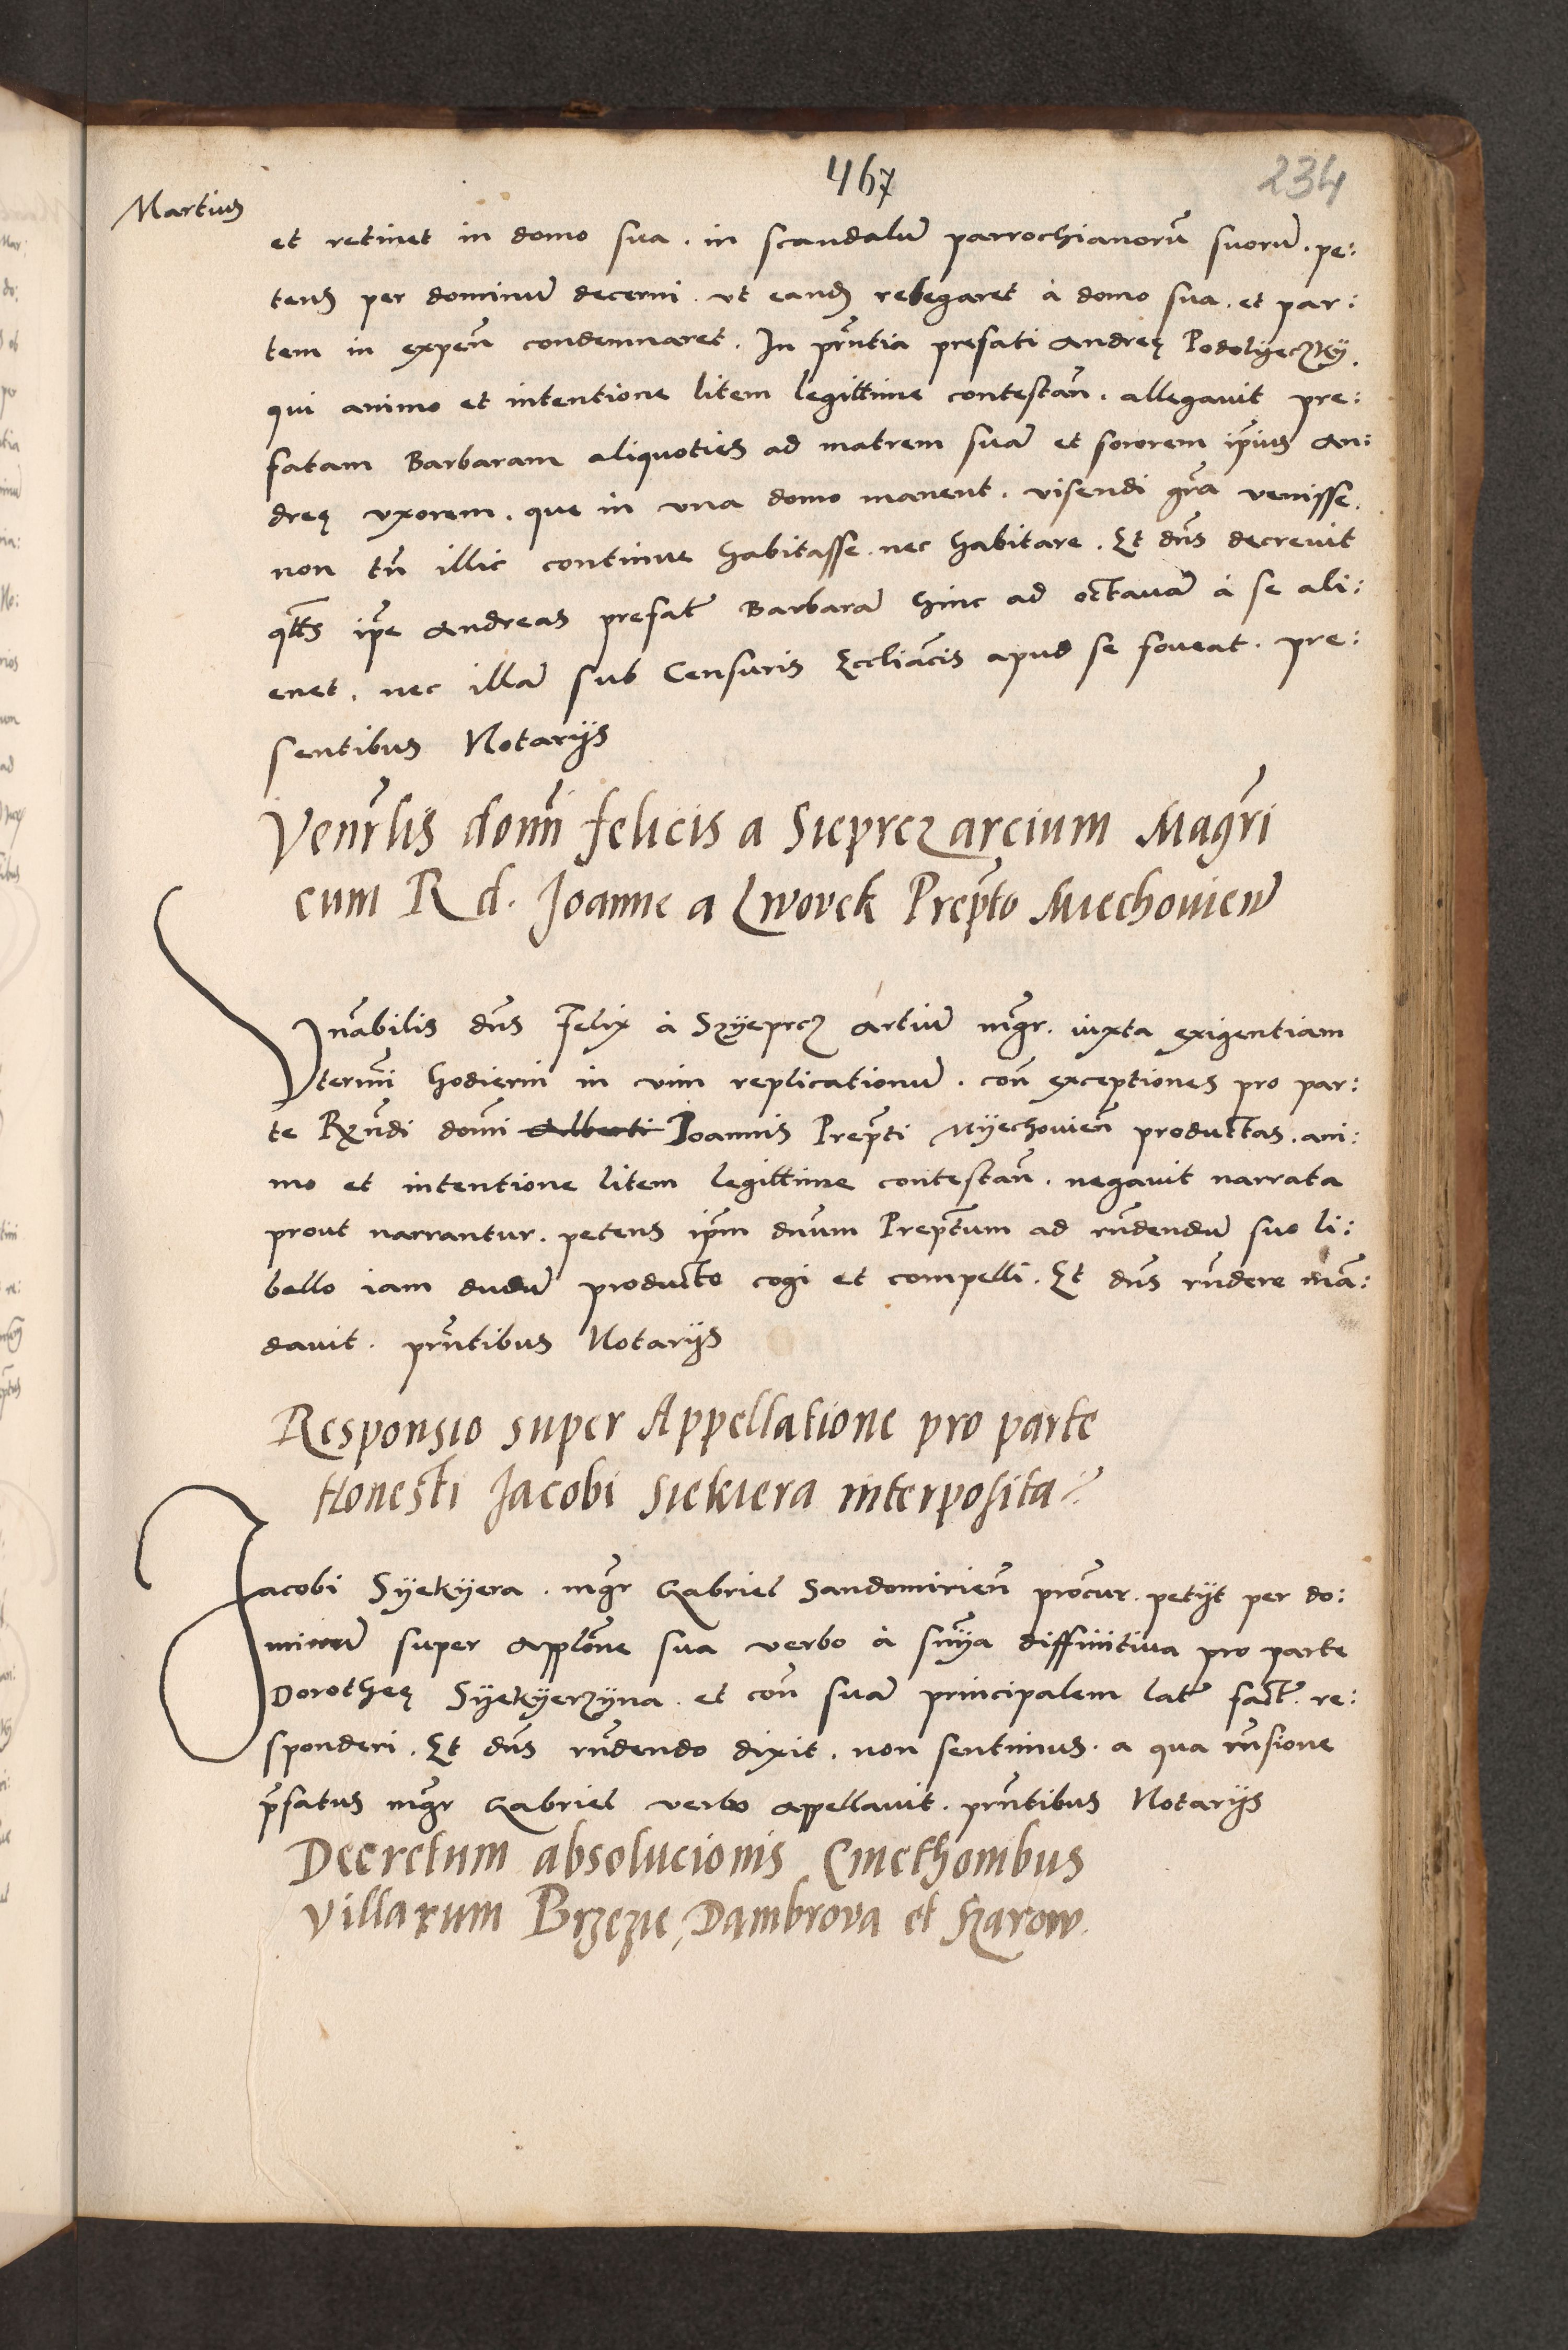 467
234
Martius
et retinet in domo sua. in scandalũ parrochianorũ suorũ. pe:
tens per dominũ decerni. ut eandẽ relegaret à domo sua. et par:
tem in expeñ condemnaret. In prñtia prefati Andreę Podolyeczky.
qui animo et intentione litem legittime contestañ. allegavit pre:
fatam Barbaram aliquoties ad matrem suã et sororem ip̃ius An:
dreę uxorem. que in una domo manent. visendi grã venisse.
non tñ illic continue habitasse. nec habitare. Et dñs decrevit
q̃tts ip̃e Andreas prefat̃ Barbarã hinc ad octavã à se ali:
enet. nec illã sub Censuris Eccliãcis apud se foveat. pre:
sentibus Notarijs
Venr̃lis domĩ felicis a Sieprcz arcium Magr̃i
cum R d. Joanne a Lwovek Prep̃to Miechovień
Vñabilis dñs Felix à Syeprcz Artiũ mg̃r. iuxta exigentiam
termĩ hodierni in vim replicationũ. coñ exceptiones pro par:
te Rx̃ndi domĩ Alberti Joannis Prep̃ti Myechovieñ productas. ani:
mo et intentione litem legittime contestañ. negavit narrata
prout narrantur. petens ip̃m dnum Prep̃tum ad rñdendũ suo li:
bello iam dudũ producto cogi et compelli. Et dñs rñdere mã:
davit. prñtibus Notarijs
Responsio super Appellatione pro parte
Honesti Jacobi Siekiera interposita
Jacobi Syekyera. mg̃r Gabriel Sandomirieñ procur̃. petyt per do:
minũ super applõne sua verbo à sñya diffinitiva pro parte
Dorotheę Syekyerzyna. et coñ suã principalem lat̃ fact̃. re:
sponderi. Et dñs rñdendo dixit. non sentimus. a qua rñsione
p̃fatus mg̃r Gabriel verbo appellavit. prñtibus Notarijs
Decretum absolucionis Cmethonibus
villarum Brzezie, Dambrova et Szarow.